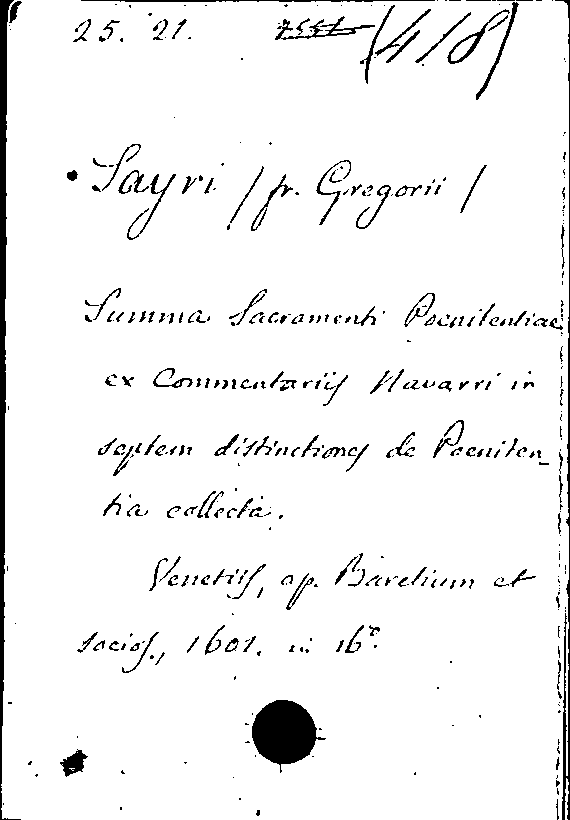 25. 21. 7551 (418)
Sayri (fr. Gregorii)
Summa Sacramenti Poenitentiae
ex Commentariis Navarri in
septem distinctiones de Poeniten-
tia collecta.
Venetiis, ap. Baretium et
socios., 1601. in 16°.